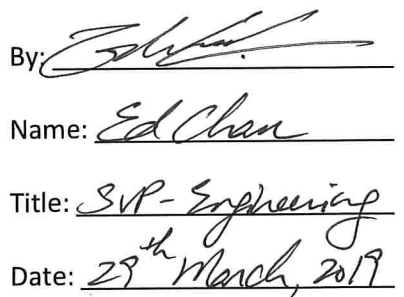 By:
Name: Ed Chan
Title: SVP - Engineering
Date: 29th March, 2019